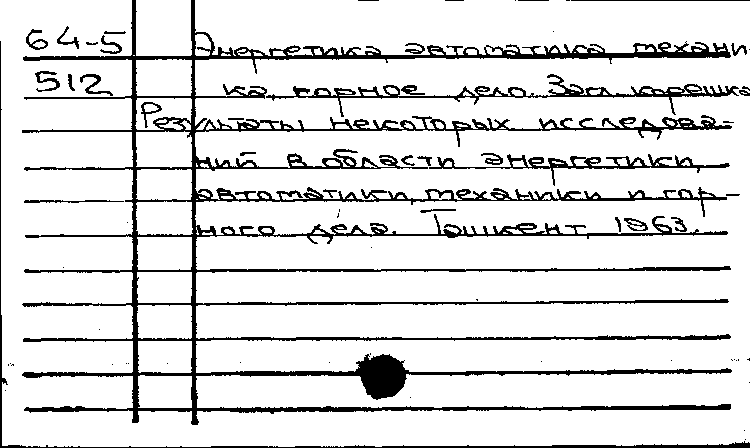 64-5 Энергетика, автоматика, механи
512 ка, горное дело. Загл. корешка
Результаты некоторых исследова-
ний в области энергетики,
автоматики, механики и гор-
ного дела. Ташкент, 1963.